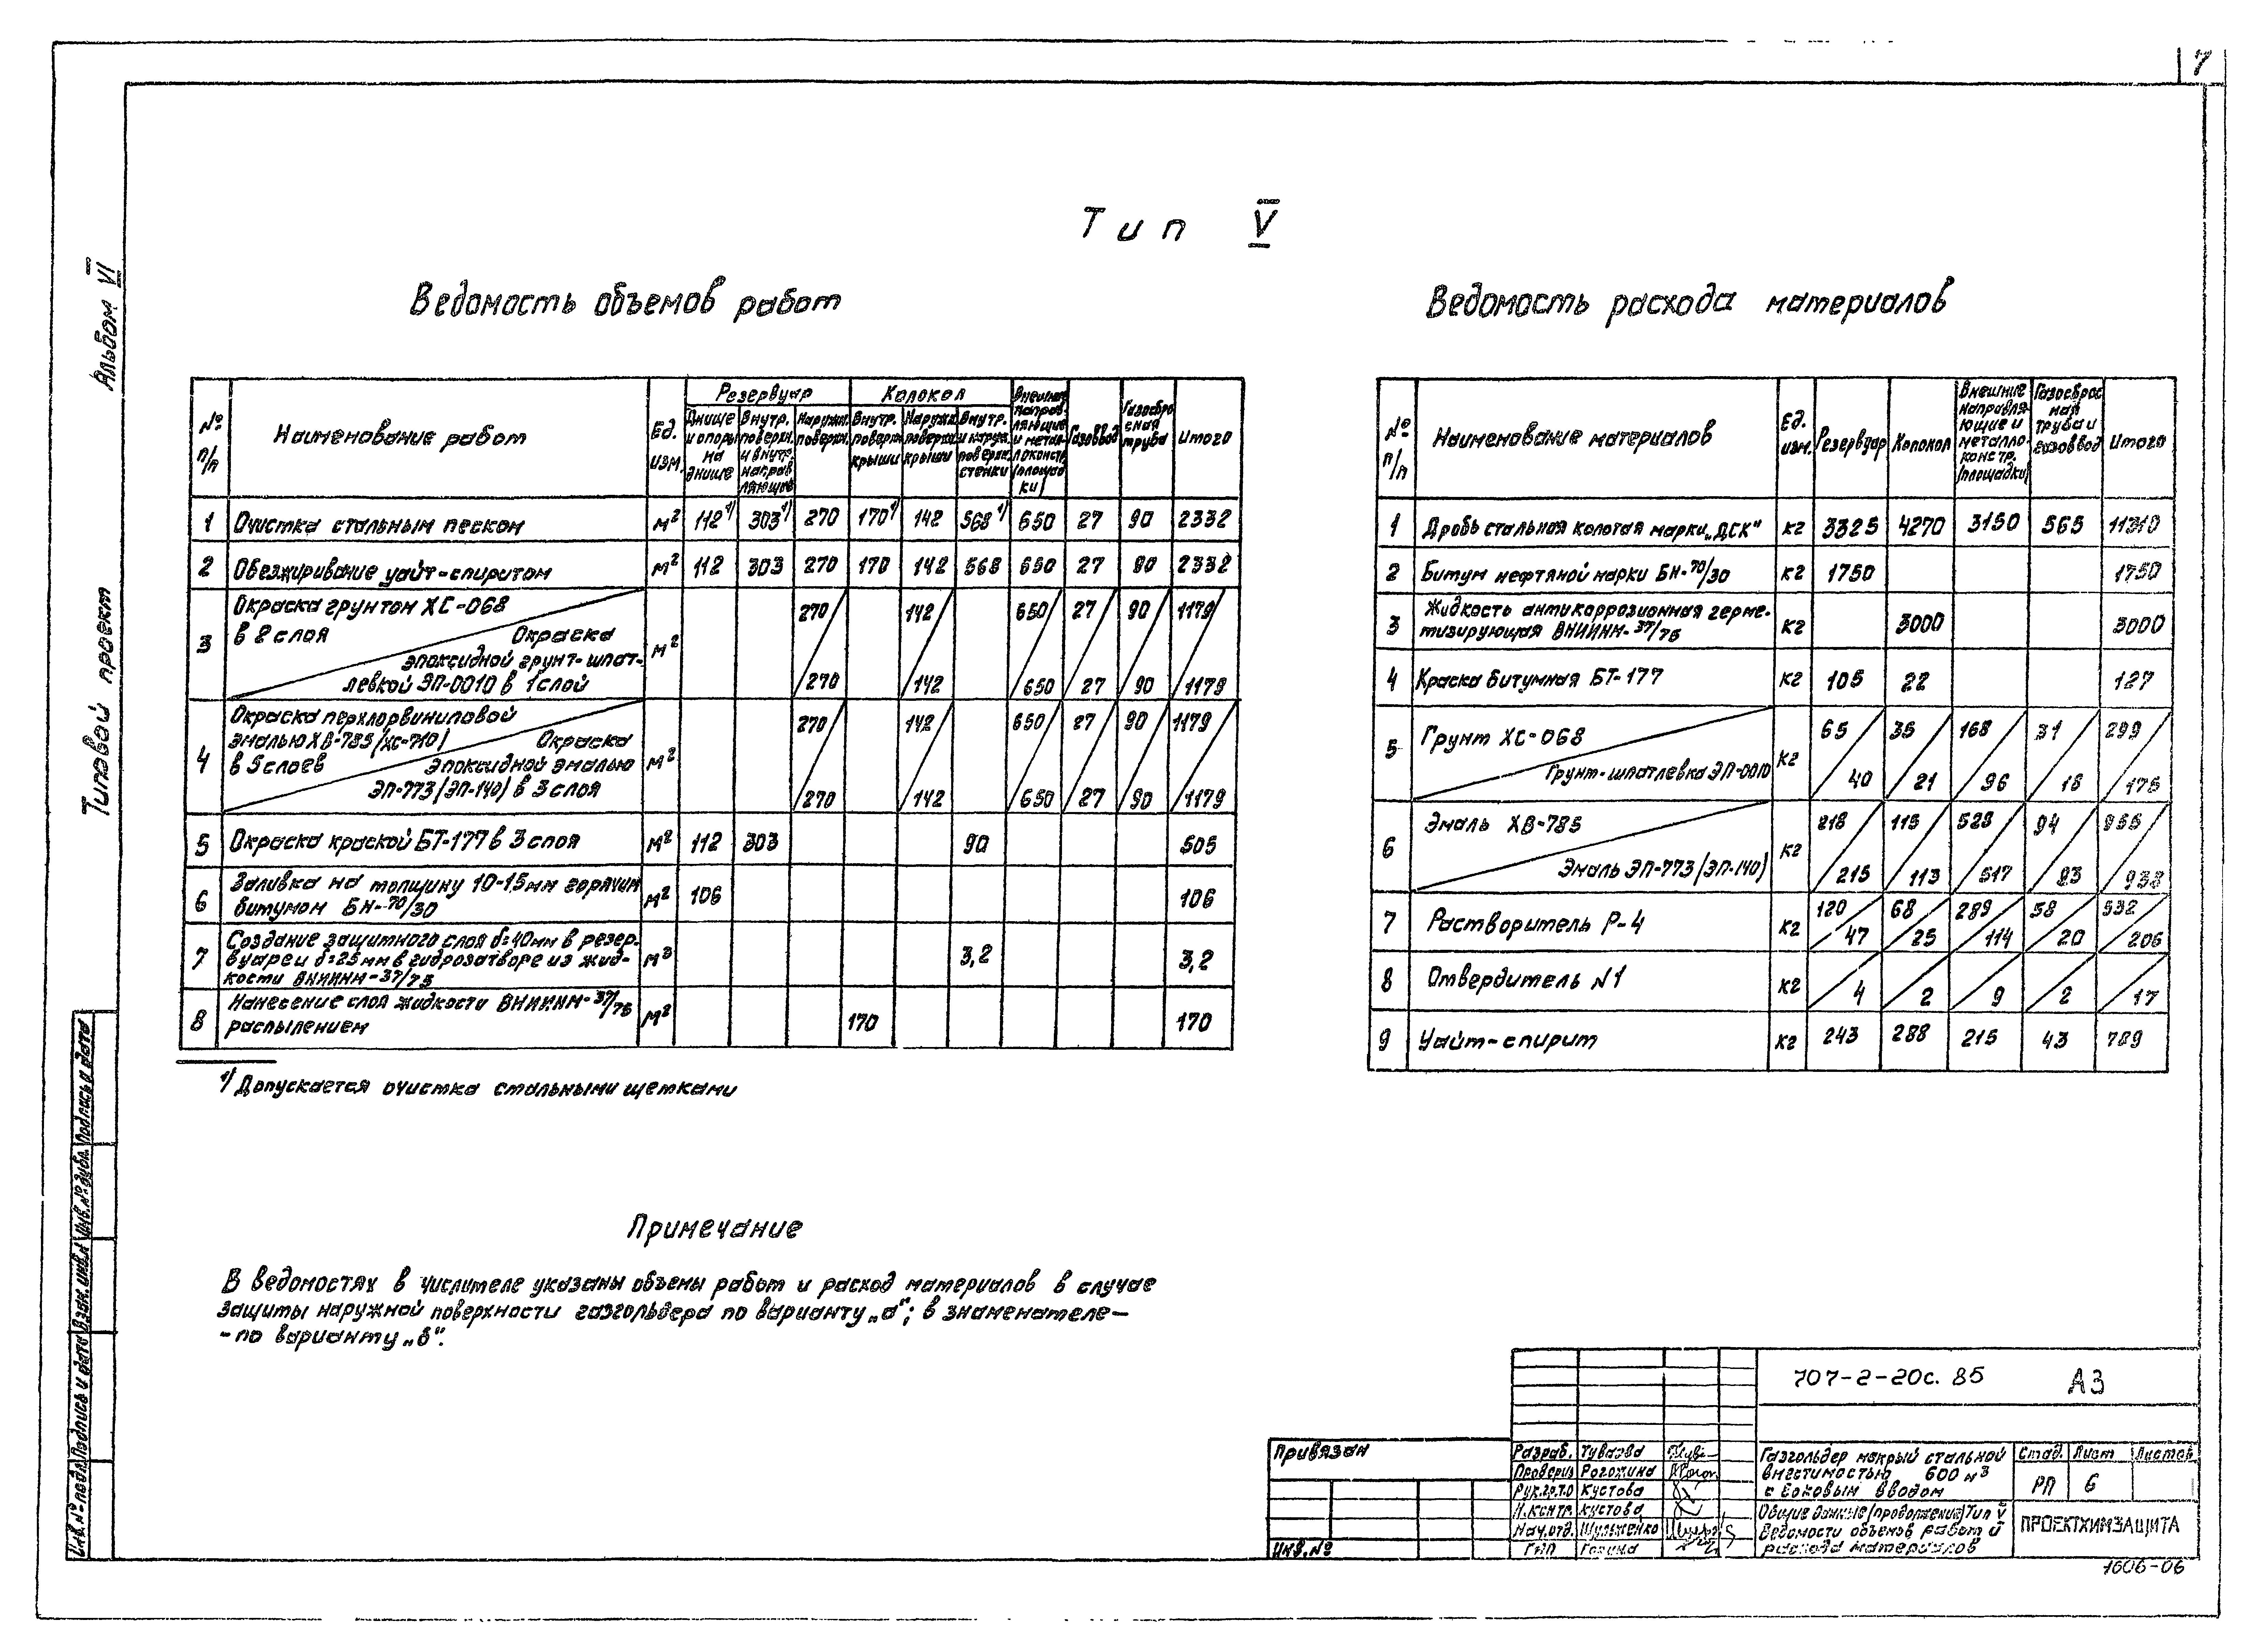 7
Тип V
Альбом VI
Типовой проект
Ведомость объемов работ
№ п/п | Наименование работ | Ед. изм. | Резервуар | Колокол | Внешние направляющие и металлоконстр. (площадки) | Газоввод | Газосбросная труба | Итого
Днище и опоры на днище | Внутр. поверхн. и внутр. направляющие | Наружн. поверхн. | Внутр. поверхн. крыши | Наружн. поверхн. крыши | Внутр. и наружн. поверхн. стенки
1 Очистка стальным песком м² 112¹⁾ 303¹⁾ 270 170¹⁾ 142 568¹⁾ 650 27 90 2332
2 Обезжиривание уайт-спиритом м² 112 303 270 170 142 568 650 27 90 2332
3 Окраска грунтом ХС-068 в 2 слоя м² 270 142 650 27 90 1179
Окраска эпоксидной грунт-шпатлевкой ЭП-0010 в 1 слой 270 142 650 27 90 1179
4 Окраска перхлорвиниловой эмалью ХВ-785 (ХС-710) в 5 слоев м² 270 142 650 27 90 1179
Окраска эпоксидной эмалью ЭП-773 (ЭП-140) в 3 слоя 270 142 650 27 90 1179
5 Окраска краской БТ-177 в 3 слоя м² 112 303 90 505
6 Заливка на толщину 10-15мм горячим битумом БН-70/30 м² 106 106
7 Создание защитного слоя δ=40мм в резервуаре и δ=25мм в гидрозатворе из жидкости ВНИИНМ-37/75 м³ 3,2 3,2
8 Нанесение слоя жидкости ВНИИНМ-37/75 распылением м² 170 170
¹⁾ Допускается очистка стальными щетками
Ведомость расхода материалов
№ п/п | Наименование материалов | Ед. изм. | Резервуар | Колокол | Внешние направляющие и металлоконстр. (площадки) | Газосбросная труба и газоввод | Итого
1 Дробь стальная колотая марки „ДСК“ кг 3325 4270 3150 565 11310
2 Битум нефтяной марки БН-70/30 кг 1750 1750
3 Жидкость антикоррозионная герметизирующая ВНИИНМ-37/75 кг 3000 3000
4 Краска битумная БТ-177 кг 105 22 127
5 Грунт ХС-068 кг 65 35 168 31 299
Грунт-шпатлевка ЭП-0010 40 21 96 18 175
6 Эмаль ХВ-785 кг 218 115 528 94 955
Эмаль ЭП-773 (ЭП-140) 215 113 517 93 938
7 Растворитель Р-4 кг 120 68 289 58 532
47 25 114 20 206
8 Отвердитель N1 кг 4 2 9 2 17
9 Уайт-спирит кг 243 288 215 43 789
Примечание
В ведомостях в числителе указаны объемы работ и расход материалов в случае
защиты наружной поверхности газгольдера по варианту „а“; в знаменателе-
-по варианту „б“.
707-2-20с.85 АЗ
Привязан
Инв.№
Разраб. Туваева
Проверил Рогожина
Рук.гр.т.о Кустова
Н.контр. Кустова
Нач.отд. Шульженко
ГИП
Газгольдер мокрый стальной
вместимостью 600 м³
с боковым вводом
Стад. Лист Листов
РП 6
Общие данные (продолжение) Тип V
Ведомости объемов работ и
расхода материалов
ПРОЕКТХИМЗАЩИТА
1606-06
Инв.№ подл. Подпись и дата Взам. инв.№ Инв.№ дубл. Подпись и дата